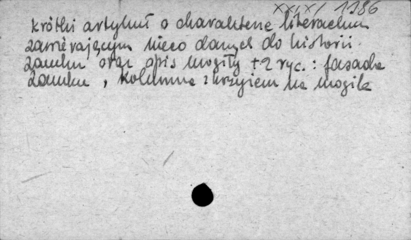 XXIX/1386
krótki artykuł o charakterze literackim
zawierającym nieco danych do historii
zamku oraz opis mogiły + 2 ryc.: fasada
zamku, kolumna z krzyżem na mogile